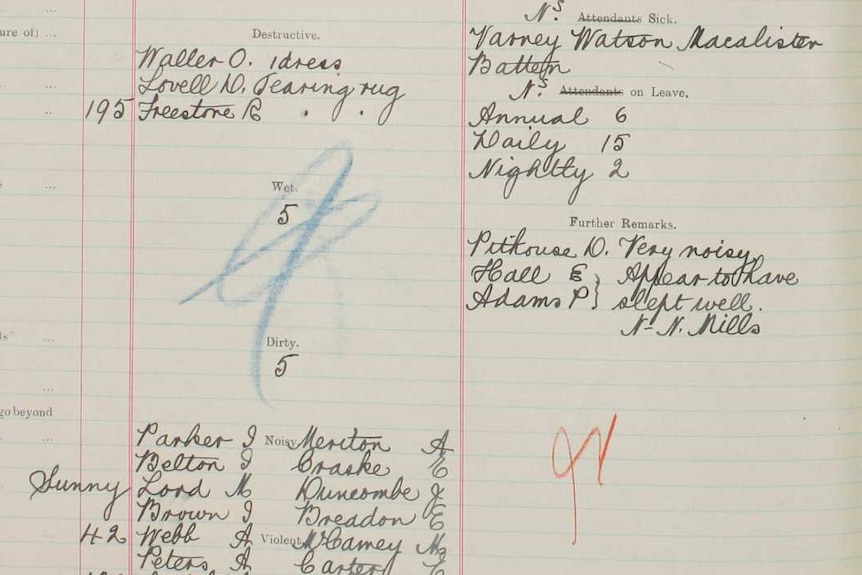 ure of) ...
Destructive.
Waller O. 1dress
Lovell D. Tearing rug
195 Freestone R " "
Wet.
5
Dirty.
5
go beyond
Parker I Noisy Meriton A
Belton I Craske E
Sunny Lord M Duncombe J
Brown I Breadon E
42 Webb A Violent McCamey M
Peters A Carter E
Ns Attendants Sick.
Varney Watson Macalister
Batten
Ns Attendants on Leave.
Annual 6
Daily 15
Nightly 2
Further Remarks.
Pithouse D. Very noisy
Hall E } Appear to have
Adams P } slept well.
N- N. Mills